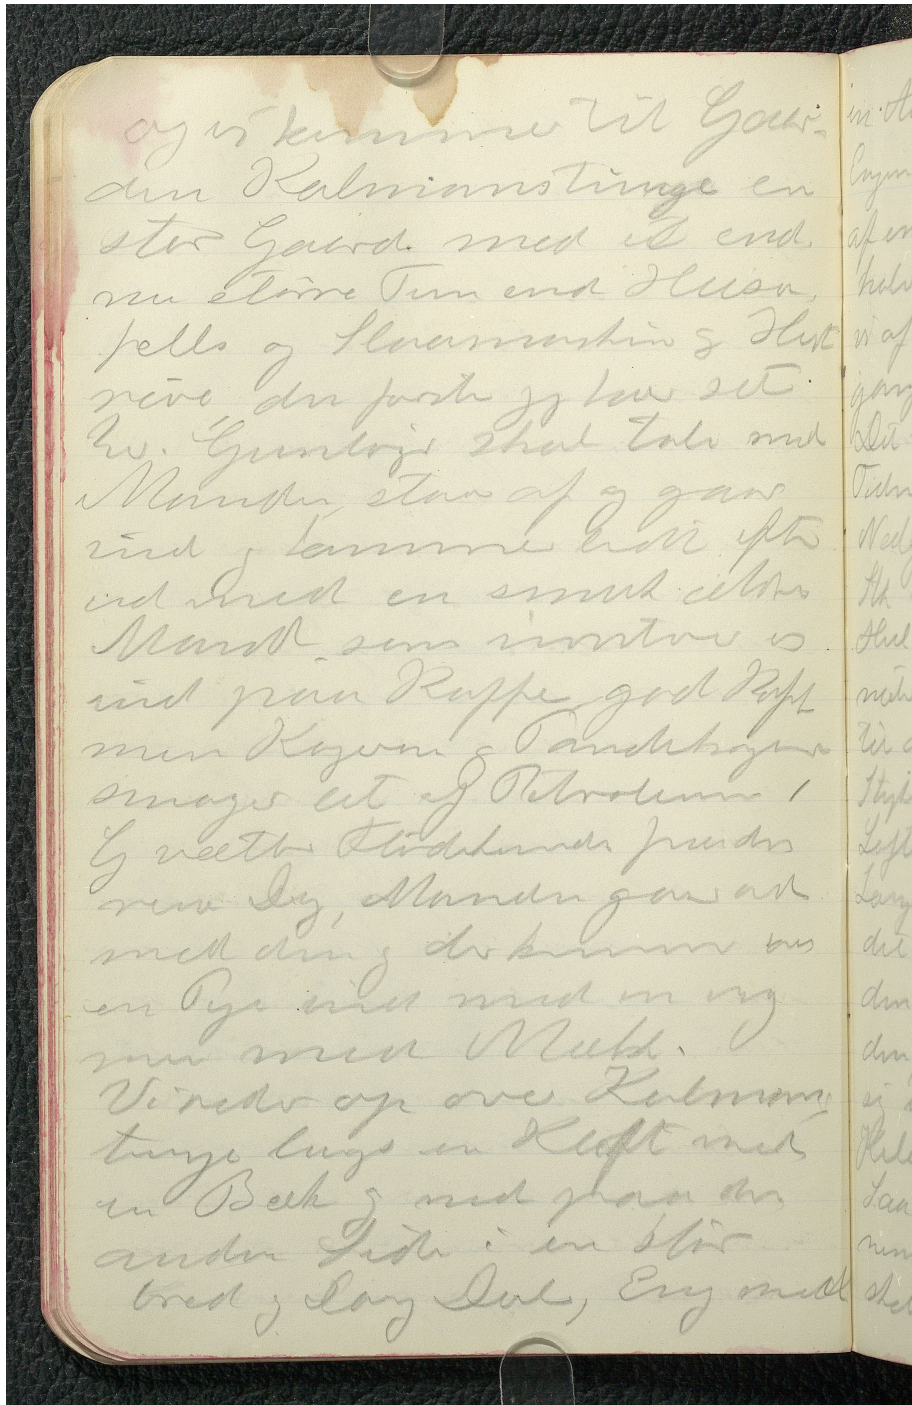 og vi kommer til Gaar-
den Kalmanstunge en
stor Gaard med et end
nu större Tun end Husa
fells og Slaamaskine og Hest
rive den förste jeg har set
Hr. Gunlögr skal tale med
Manden, staar af og gaar
ind og kommer lidt efter
ud med en smuk ældre
Mand som inviterer os
ind paa Kaffe, god Kaffe
men Kagerne og Pandekagerne
smager let af Petroleum
G vælter Flödekande
Dug, Manden gaar ud
med den og der kommer
en Pige ind med en ny
men med Mælk.
Vi rider op over Kalmans
tunge langs en Klöft med
en Bæk og ned paa den
anden Side i en stor
bred og Lang Dal, Eng med
in
Engen
af en
halv
vi af
gang
Det
Tiden
Ned
Hul
til
Luft
Lang
det
den
den
sig
Hele
Saa